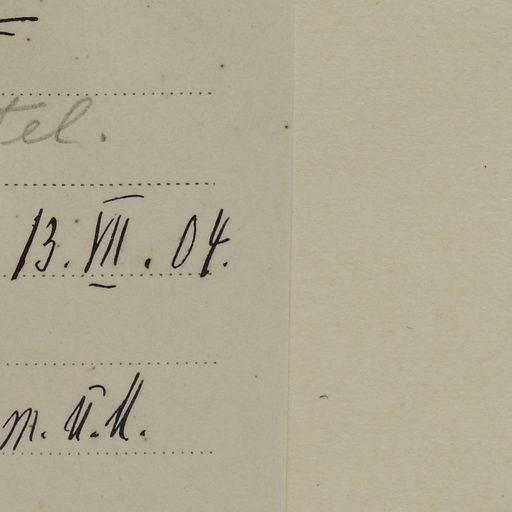 tel.
13. VII. 04.
m.